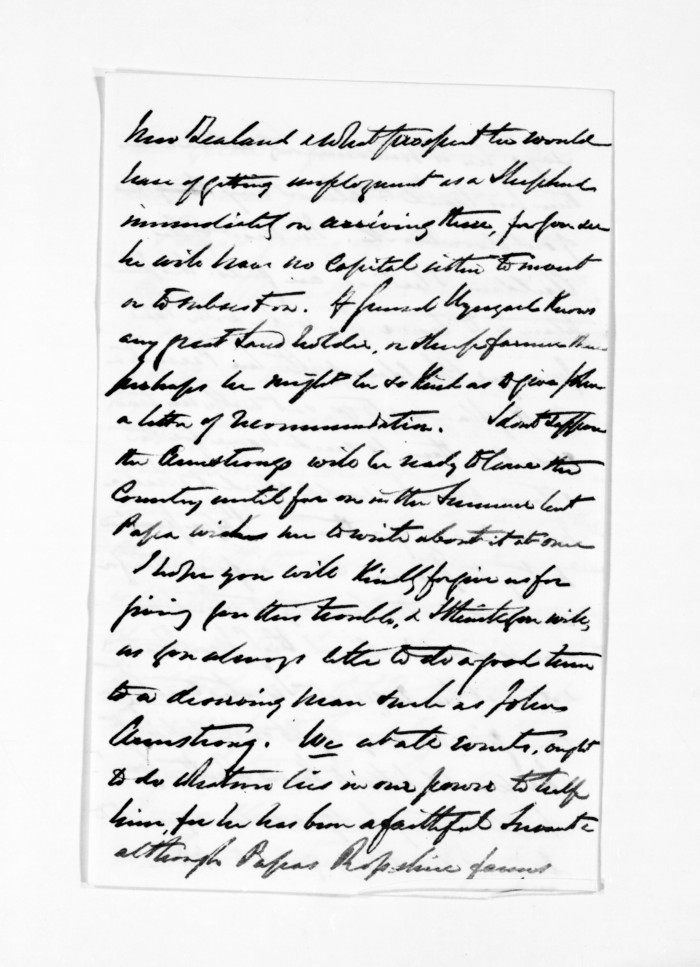 New Zealand & what prospect he would
have of getting employment as a Shepherd
immediately on arriving there, for you see
he will have no Capital either to invest
or to subsist on. If General Wynyard Knows
any great Land holder, or Sheep farmer there
perhaps he might be so Kind as to give John
a letter of recommendation. I dont suppose
the Armstrongs will be ready to leave the
Country until far on in the Summer but
Papa wishes me to write about it at once
I hope you will Kindly forgive us for
giving you this trouble, & I think you will,
as you always like to do a good turn
to a deserving man such as John
Armstrong. We at all events, ought
to do whatever lies in our power to help
him, for he has been a faithful Servant &
although Papas Ropshire farms